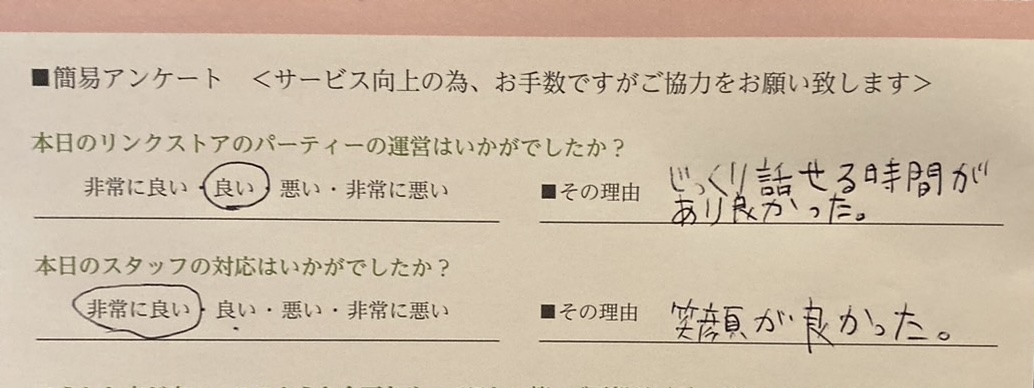 ■簡易アンケート ＜サービス向上の為、お手数ですがご協力をお願い致します＞
本日のリンクストアのパーティーの運営はいかがでしたか？
非常に良い・良い・悪い・非常に悪い ■その理由 じっくり話せる時間が
あり良かった。
本日のスタッフの対応はいかがでしたか？
非常に良い・良い・悪い・非常に悪い ■その理由 笑顔が良かった。